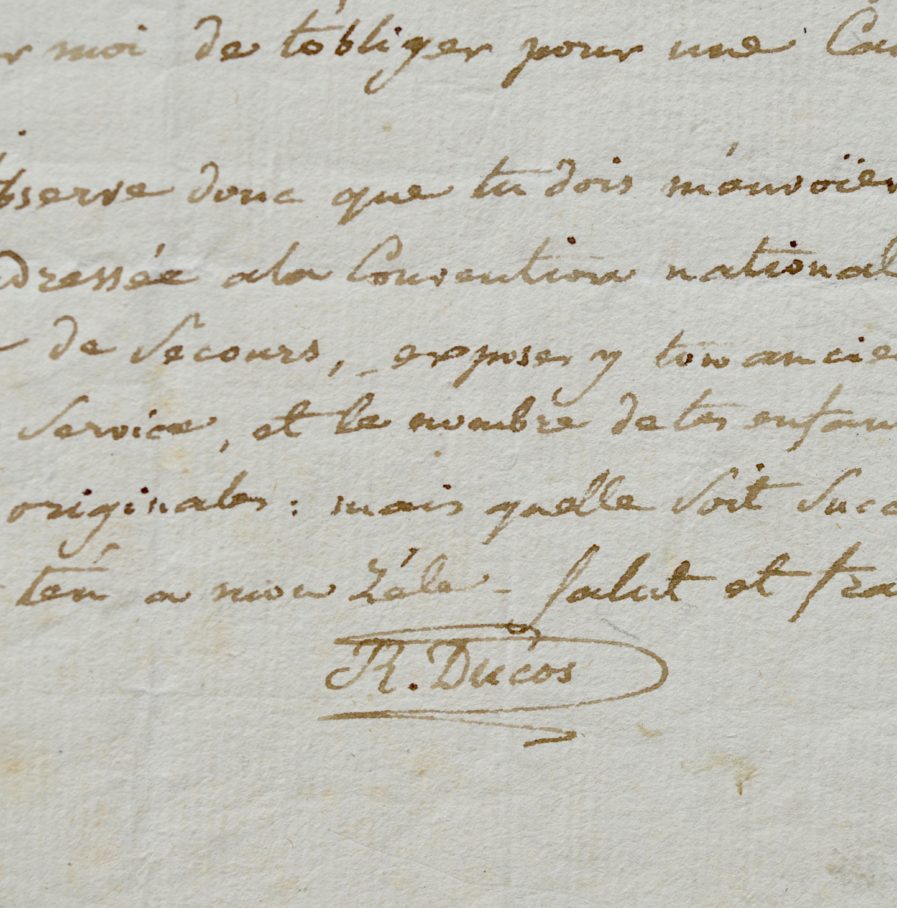 r moi de t'obliger pour une Cau
bserve donc que tu dois m'envoïer
dressée ala Convention national
de Secours, exposes y ton ancie
Service, et le nombre de tes enfan
originales : mais quelle soit Succ
tens a mon Zéle - Salut et fra
R. Ducos